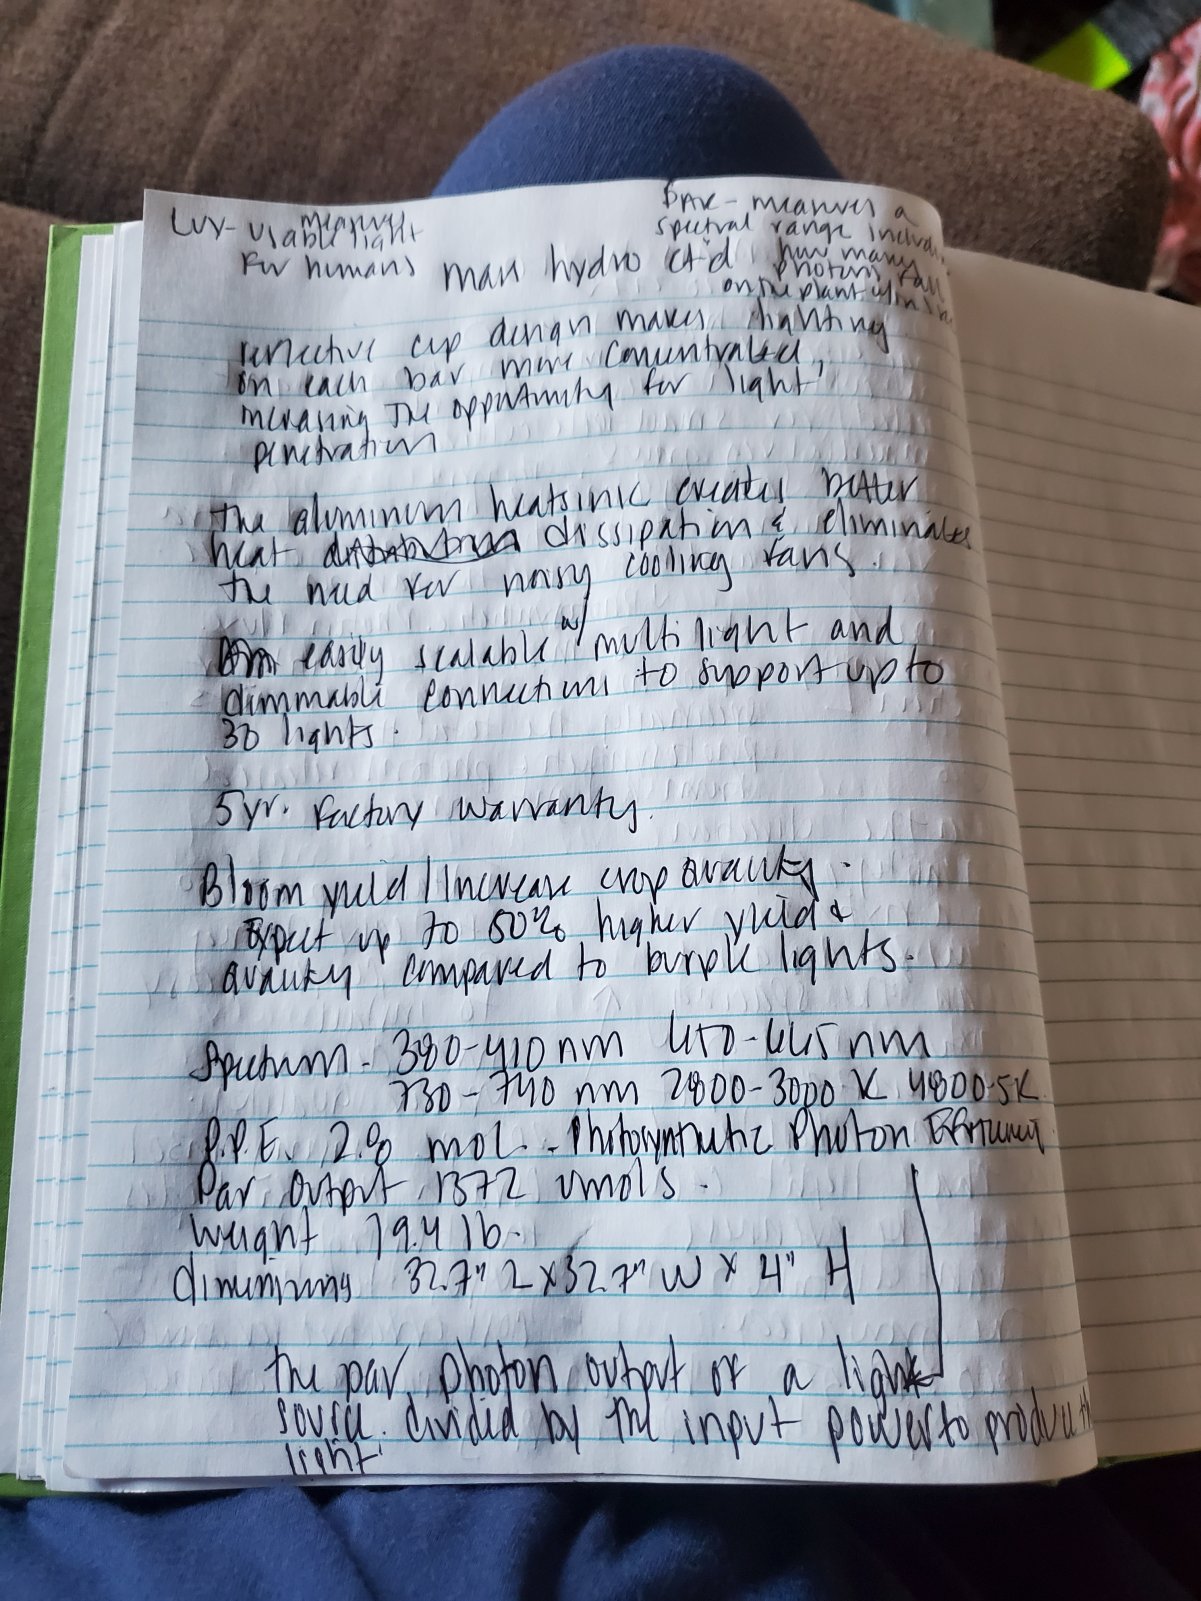 LUX- usable light measures
for humans
PAR- measures a
spectral range includ
how many
photons fall
on the plant w/in
mars hydro
reflective cup design makes lighting
on each bar more concentrated,
increasing the opportunity for light
penetration
the aluminum heatsink creates better
heat dissipation & eliminates
the need for noisy cooling fans.
easily scalable w/ multi light and
dimmable connections to support up to
30 lights.
5 yr. Factory warranty.
Bloom yield / Increase crop quality.
Expect up to 50% higher yield &
quality compared to burple lights.
Spectrum - 380-410 nm 
730 - 740 nm 2800-3000 K 4800-5K
P.P.E. 2.8 mol - Photosynthetic Photon Efficiency.
Par Output 1372 umols.
Weight 19.4 lb.
dimensions 32.7" L x 32.7" W x 4" H
the par photon output of a light
source divided by the input power to produce th
light